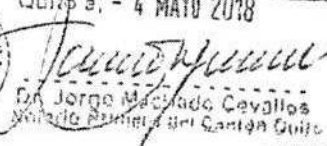 Quito a, - 4 MAYO 2018
Dr. Jorge Machado Cevallos
Notario Primero del Cantón Quito